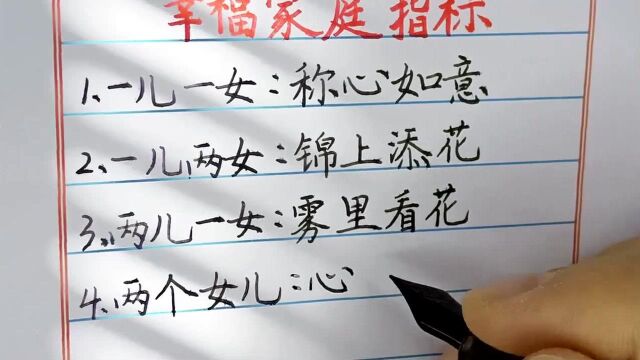 幸福家庭指标
1、一儿一女：称心如意
2、一儿两女：锦上添花
3、两儿一女：雾里看花
4、两个女儿：心